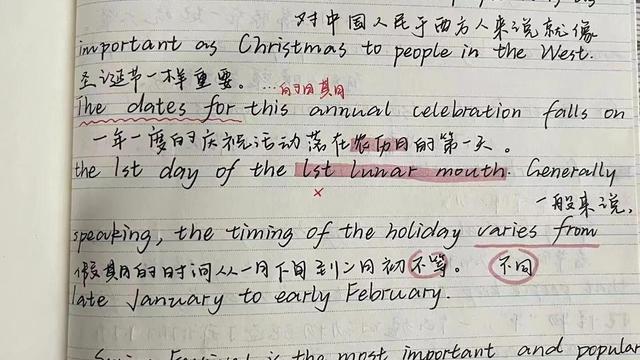 对中国人民于西方人来说就像
important as Christmas to people in the West.
圣诞节一样重要。 ...的日期
The dates for this annual celebration falls on
一年一度的庆祝活动落在农历月的第一天。
the 1st day of the 1st lunar mouth. Generally
×
一般来说,
speaking, the timing of the holiday varies from
假期的时间从一月下旬到二月初不等。 不同
late January to early February.
Spring Festival is the most important and popular